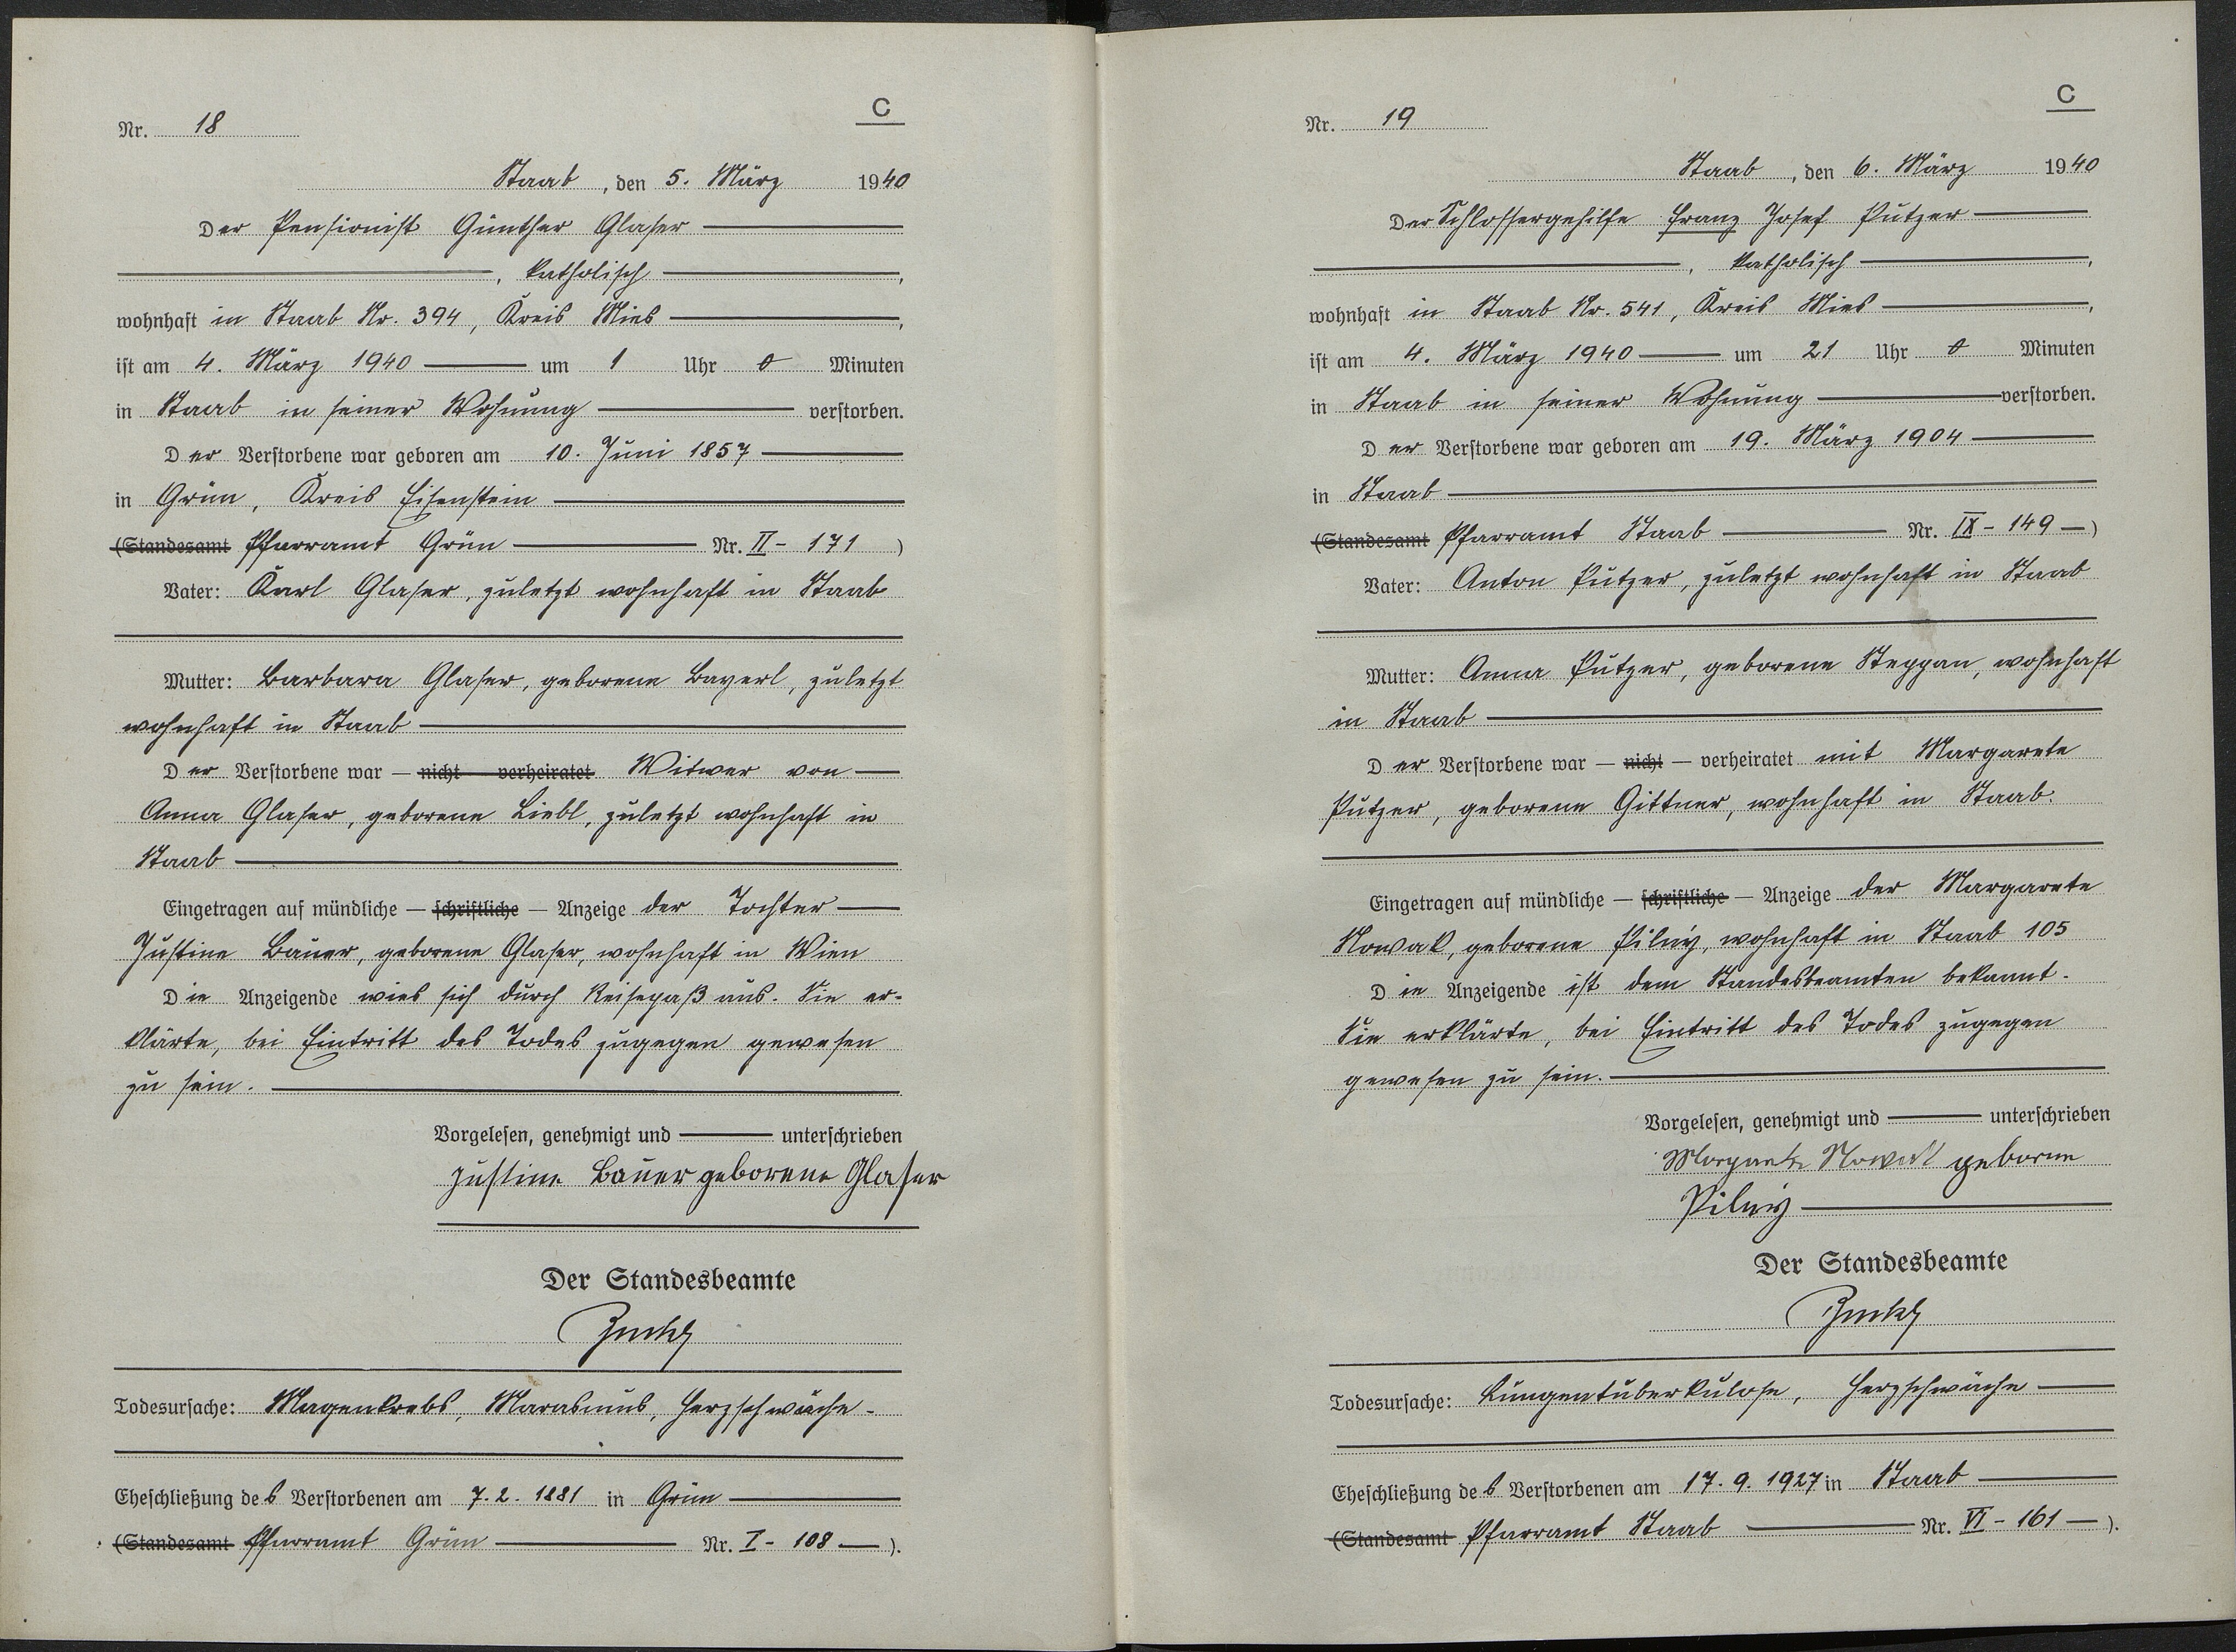 C
Nr. 18
Staab, den 5. März 1940
Der Pensionist Günther Glaser
, katholisch,
wohnhaft in Staab Nr. 394, Kreis Mies,
ist am 4. März 1940 um 1 Uhr 0 Minuten
in Staab in seiner Wohnung verstorben.
Der Verstorbene war geboren am 10. Juni 1857
in Grün, Kreis Eisenstein
(Standesamt Pfarramt Grün Nr. II - 171)
Vater: Karl Glaser, zuletzt wohnhaft in Staab
Mutter: Barbara Glaser, geborene Bayerl, zuletzt
wohnhaft in Staab
Der Verstorbene war — nicht verheiratet Witwer von
Anna Glaser, geborene Liebl, zuletzt wohnhaft in
Staab
Eingetragen auf mündliche — schriftliche — Anzeige der Tochter
Justine Bauer, geborene Glaser, wohnhaft in Wien
Die Anzeigende wies sich durch Reisepaß aus. Sie er-
klärte, bei Eintritt des Todes zugegen gewesen
zu sein.
Vorgelesen, genehmigt und unterschrieben
Justine Bauer geborene Glaser
Der Standesbeamte
Todesursache: Magenkrebs, Marasmus, Herzschwäche -
Eheschließung des Verstorbenen am 7. 2. 1881 in Grün
(Standesamt Pfarramt Grün Nr. I - 108 —).
C
Nr. 19
Staab, den 6. März 1940
Der Schlossergehilfe Franz Josef Putzer
, katholisch,
wohnhaft in Staab Nr. 541, Kreis Mies,
ist am 4. März 1940 um 21 Uhr 0 Minuten
in Staab in seiner Wohnung verstorben.
Der Verstorbene war geboren am 19. März 1904
in Staab
(Standesamt Pfarramt Staab Nr. IX - 149 —)
Vater: Anton Putzer, zuletzt wohnhaft in Staab
Mutter: Anna Putzer, geborene Steppan, wohnhaft
in Staab
Der Verstorbene war — nicht — verheiratet mit Margarete
Putzer, geborene Gittner, wohnhaft in Staab.
Eingetragen auf mündliche — schriftliche — Anzeige der Margarete
Nowak, geborene Pilný, wohnhaft in Staab 105
Die Anzeigende ist dem Standesbeamten bekannt.
Sie erklärte, bei Eintritt des Todes zugegen
gewesen zu sein.
Vorgelesen, genehmigt und unterschrieben
Margarete Nowak geborne
Pilný
Der Standesbeamte
Todesursache: Lungentuberkulose, Herzschwäche
Eheschließung des Verstorbenen am 17. 9. 1927 in Staab
(Standesamt Pfarramt Staab Nr. VI - 161 —).